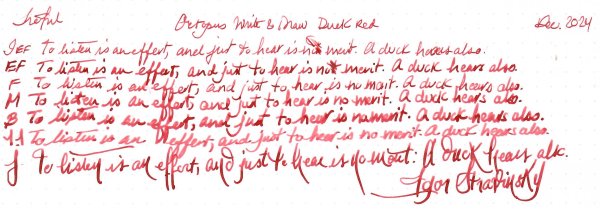 Octopus Write & Draw Duck Red Dec. 2024
IEF To listen is an effort, and just to hear is no merit. A duck hears also.
EF To listen is an effort, and just to hear is no merit. A duck hears also.
F To listen is an effort, and just to hear is no merit. A duck hears also.
M To listen is an effort, and just to hear is no merit. A duck hears also.
B To listen is an effort, and just to hear is no merit. A duck hears also.
1.1 To listen is an effort, and just to hear is no merit. A duck hears also.
J To listen is an effort, and just to hear is no merit: A duck hears also.
Igor Stravinsky